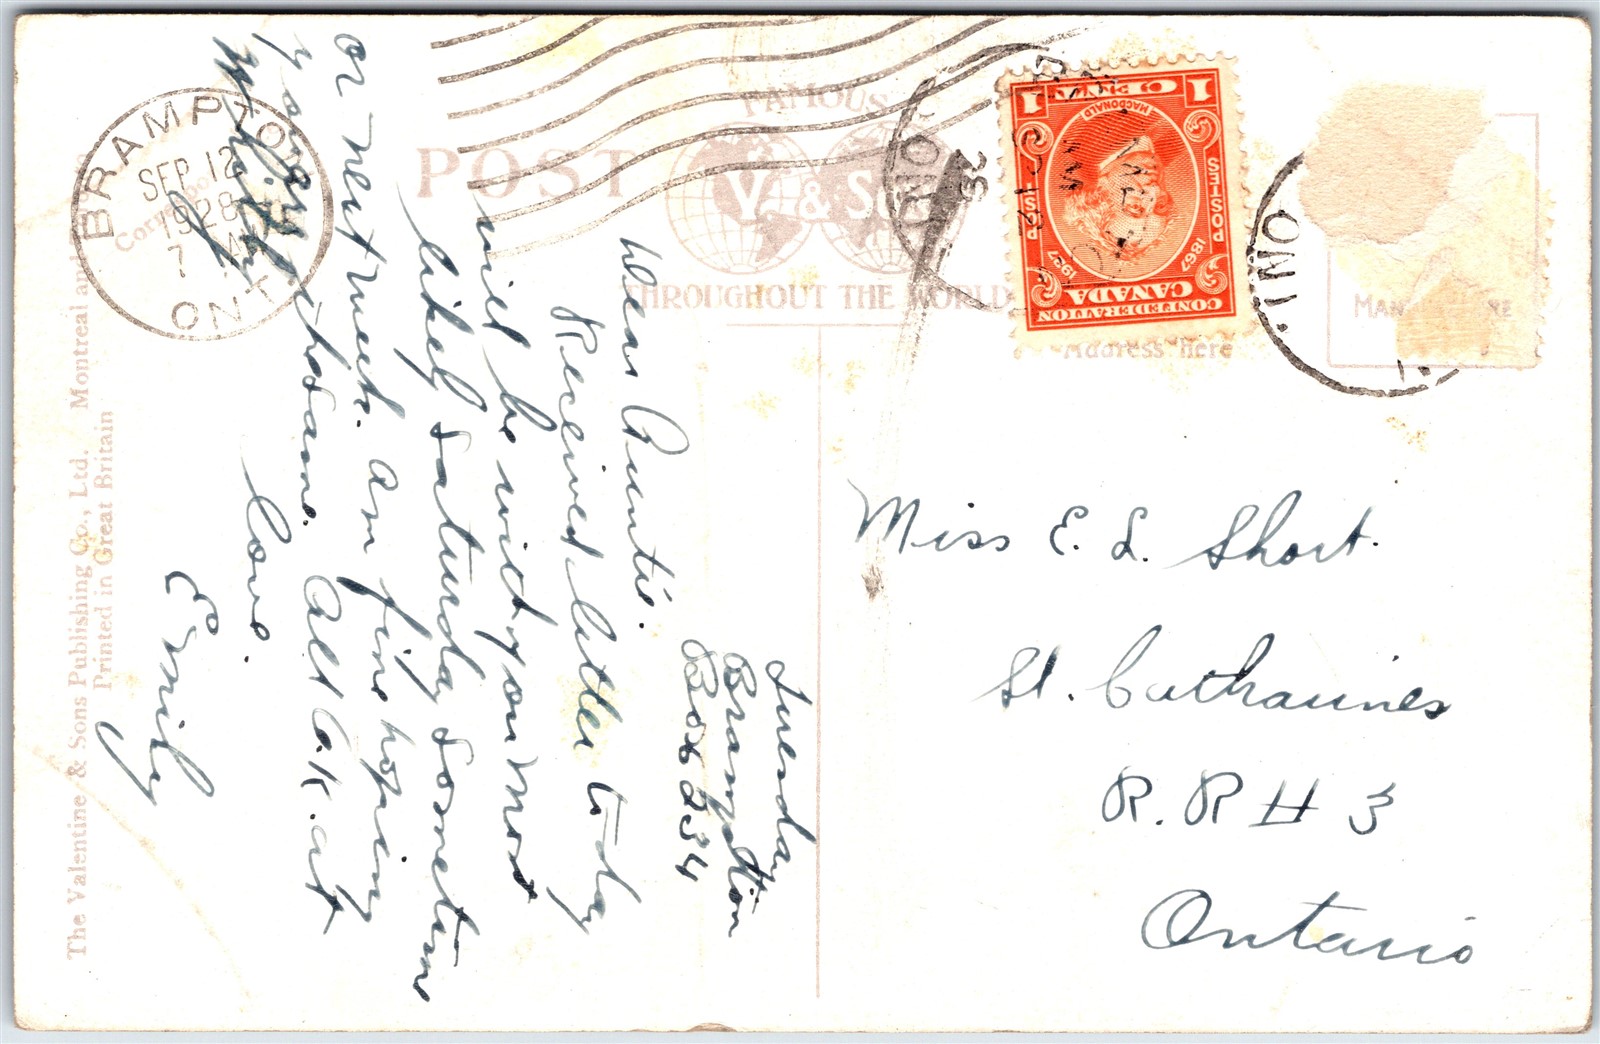 BRAMPTON
SEP 12
7 M
1928
ONT.
FAMOUS
POST
V. & Sons
THROUGHOUT THE WORLD
Address here
POSTES 1867 1927 POSTES
MACDONALD
1 1
CANADA
CONFEDERATION
ONT.
28
ONT.
The Valentine & Sons Publishing Co., Ltd. Montreal and
Printed in Great Britain
Tuesday
Brampton
Box 234
Dear Auntie.
Received letter to-day
will be with you most
likely Saturday sometime
or next week. Am fine hoping
you are the same. All O.K. at
Love.
Emily
Miss E. L. Short.
St. Catharines
R. R # 3
Ontario